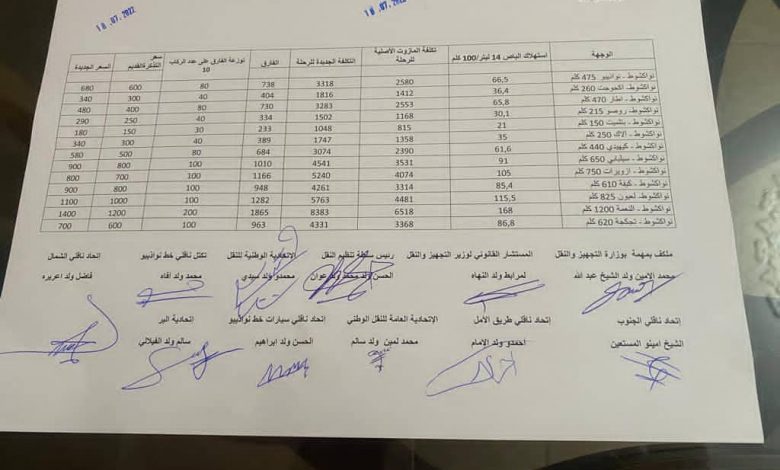 18.07.2022
18.07.2022
الوجهة استهلاك الباص 14 ليتر/100 كلم تكلفة المازوت الأصلية للرحلة التكلفة الجديدة للرحلة الفارق توزعة الفارق على عدد الركاب 10 سعر التذكرة القديم السعر الجديدة
نواكشوط - نواذيبو 475 كلم 66,5 2580 3318 738 80 600 680
نواكشوط - اكجوجت 260 كلم 36,4 1412 1816 404 40 300 340
نواكشوط - اطار 470 كلم 65,8 2553 3283 730 80 400 480
نواكشوط - روصو 215 كلم 30,1 1168 1502 334 40 250 290
نواكشوط - بتلميت 150 كلم 21 815 1048 233 30 150 180
نواكشوط - الاك 250 كلم 35 1358 1747 389 40 300 340
نواكشوط - كيهيدي 440 كلم 61,6 2390 3074 684 80 500 580
نواكشوط - سيلبابي 650 كلم 91 3531 4541 1010 100 800 900
نواكشوط - ازويرات 750 كلم 105 4074 5240 1166 100 700 800
نواكشوط - كيفة 610 كلم 85,4 3314 4261 948 100 800 900
نواكشوط - لعيون 825 كلم 115,5 4481 5763 1282 100 1000 1100
نواكشوط - النعمة 1200 كلم 168 6518 8383 1865 200 1200 1400
نواكشوط - تجكجة 620 كلم 86,8 3368 4331 963 100 600 700
ملكف بمهمة بوزارة التجهيز والنقل المستشار القانوني لوزير التجهيز والنقل رئيس سلطة تنظيم النقل الاتحادية الوطنية للنقل تكتل ناقلي خط نواذيبو إتحاد ناقلي الشمال
محمد الامين ولد الشيخ عبد الله لمرابط ولد التهاه الحسن ولد محمد ولد عوان محمدو ولد سيدي محمد ولد أفاه فاضل ولد اعريره
إتحاد ناقلي الجنوب إتحاد ناقلي طريق الأمل الاتحادية العامة للنقل الوطني إتحاد ناقلي سيارات خط نواذيبو إتحادية البر
الشيخ امينو المستعين احمدو ولد الإمام محمد لمين ولد سالم الحسن ولد ابراهيم سالم ولد الفيلالي